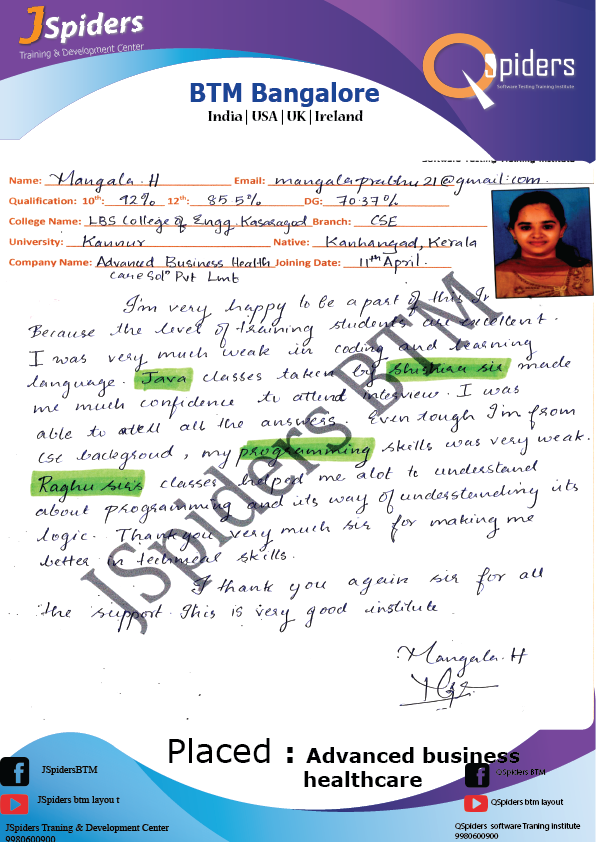 JSpiders
Training & Development Center
QSpiders
Software Testing Training Institute
BTM Bangalore
India | USA | UK | Ireland
Name: Mangala.H Email: mangalaprabhu21@gmail.com.
Qualification: 10th: 92% 12th: 85.5% DG: 70.37%
College Name: LBS College of Engg. Kasaragod Branch: CSE
University: Kannur Native: Kanhangad, Kerala
Company Name: Advanced Business Health Joining Date: 11th April.
care Soln Pvt Lmt
I'm very happy to be a part of this In
Because the level of training students are excellent.
I was very much weak in coding and learning
language. Java classes taken by sir made
me much confidence to attend interview. I was
able to tell all the answers. Even tough I'm from
CSE backgroud, my programming skills was very weak.
Raghu sir's classes helped me alot to understand
about programming and its way of understanding its
logic. Thank you very much sir for making me
better in technical skills.
I thank you again sir for all
the support. This is very good institute
Mangala.H
JSpiders BTM
Placed : Advanced business
healthcare
JSpidersBTM
QSpiders BTM
JSpiders btm layou t
QSpiders btm layout
JSpiders Traning & Development Center
9980600900
QSpiders software Traning institute
9980600900